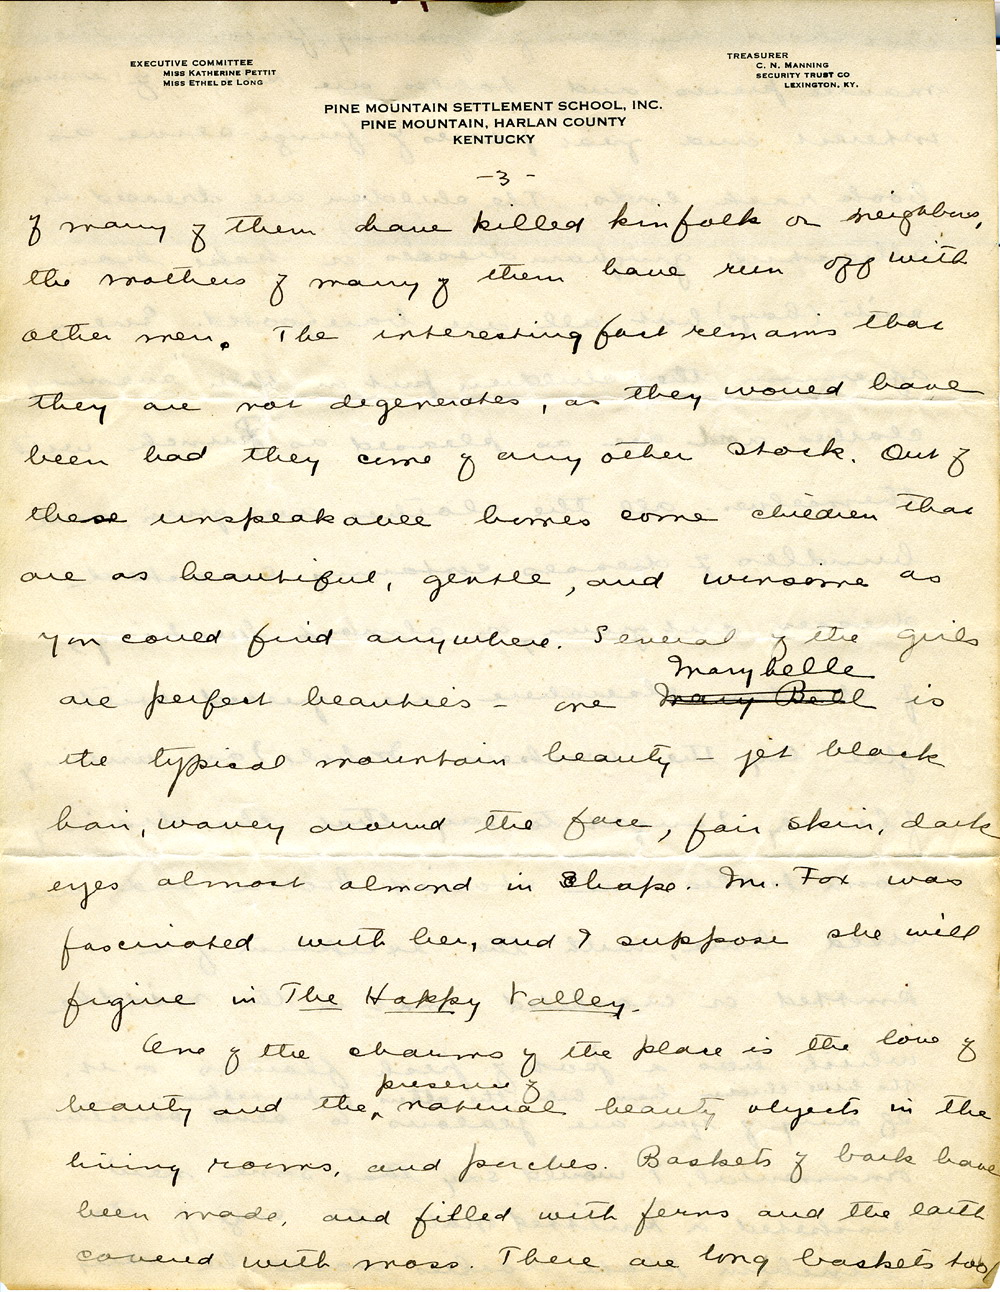 EXECUTIVE COMMITTEE
MISS KATHERINE PETTIT
MISS ETHEL DE LONG
TREASURER
C. N. MANNING
SECURITY TRUST CO
LEXINGTON, KY.
PINE MOUNTAIN SETTLEMENT SCHOOL, INC.
PINE MOUNTAIN, HARLAN COUNTY
KENTUCKY
-3-
of many of them have killed kinfolk or neighbors,
the mothers of many of them have run off with
other men. The interesting fact remains that
they are not degenerates, as they would have
been had they come of any other stock. Out of
these unspeakable homes come children that
are as beautiful, gentle, and winsome as
you could find anywhere. Several of the girls
Marybelle
are perfect beauties - one Mary Bell is
the typical mountain beauty - jet black
hair, wavey around the face, fair skin, dark
eyes almost almond in shape. Mr. Fox was
fascinated with her, and I suppose she will
figure in The Happy Valley.
One of the charms of the place is the love of
presence of
beauty and the natural beauty objects in the
living rooms, and porches. Baskets of bark have
been made, and filled with ferns and the earth
covered with moss. There are long baskets too